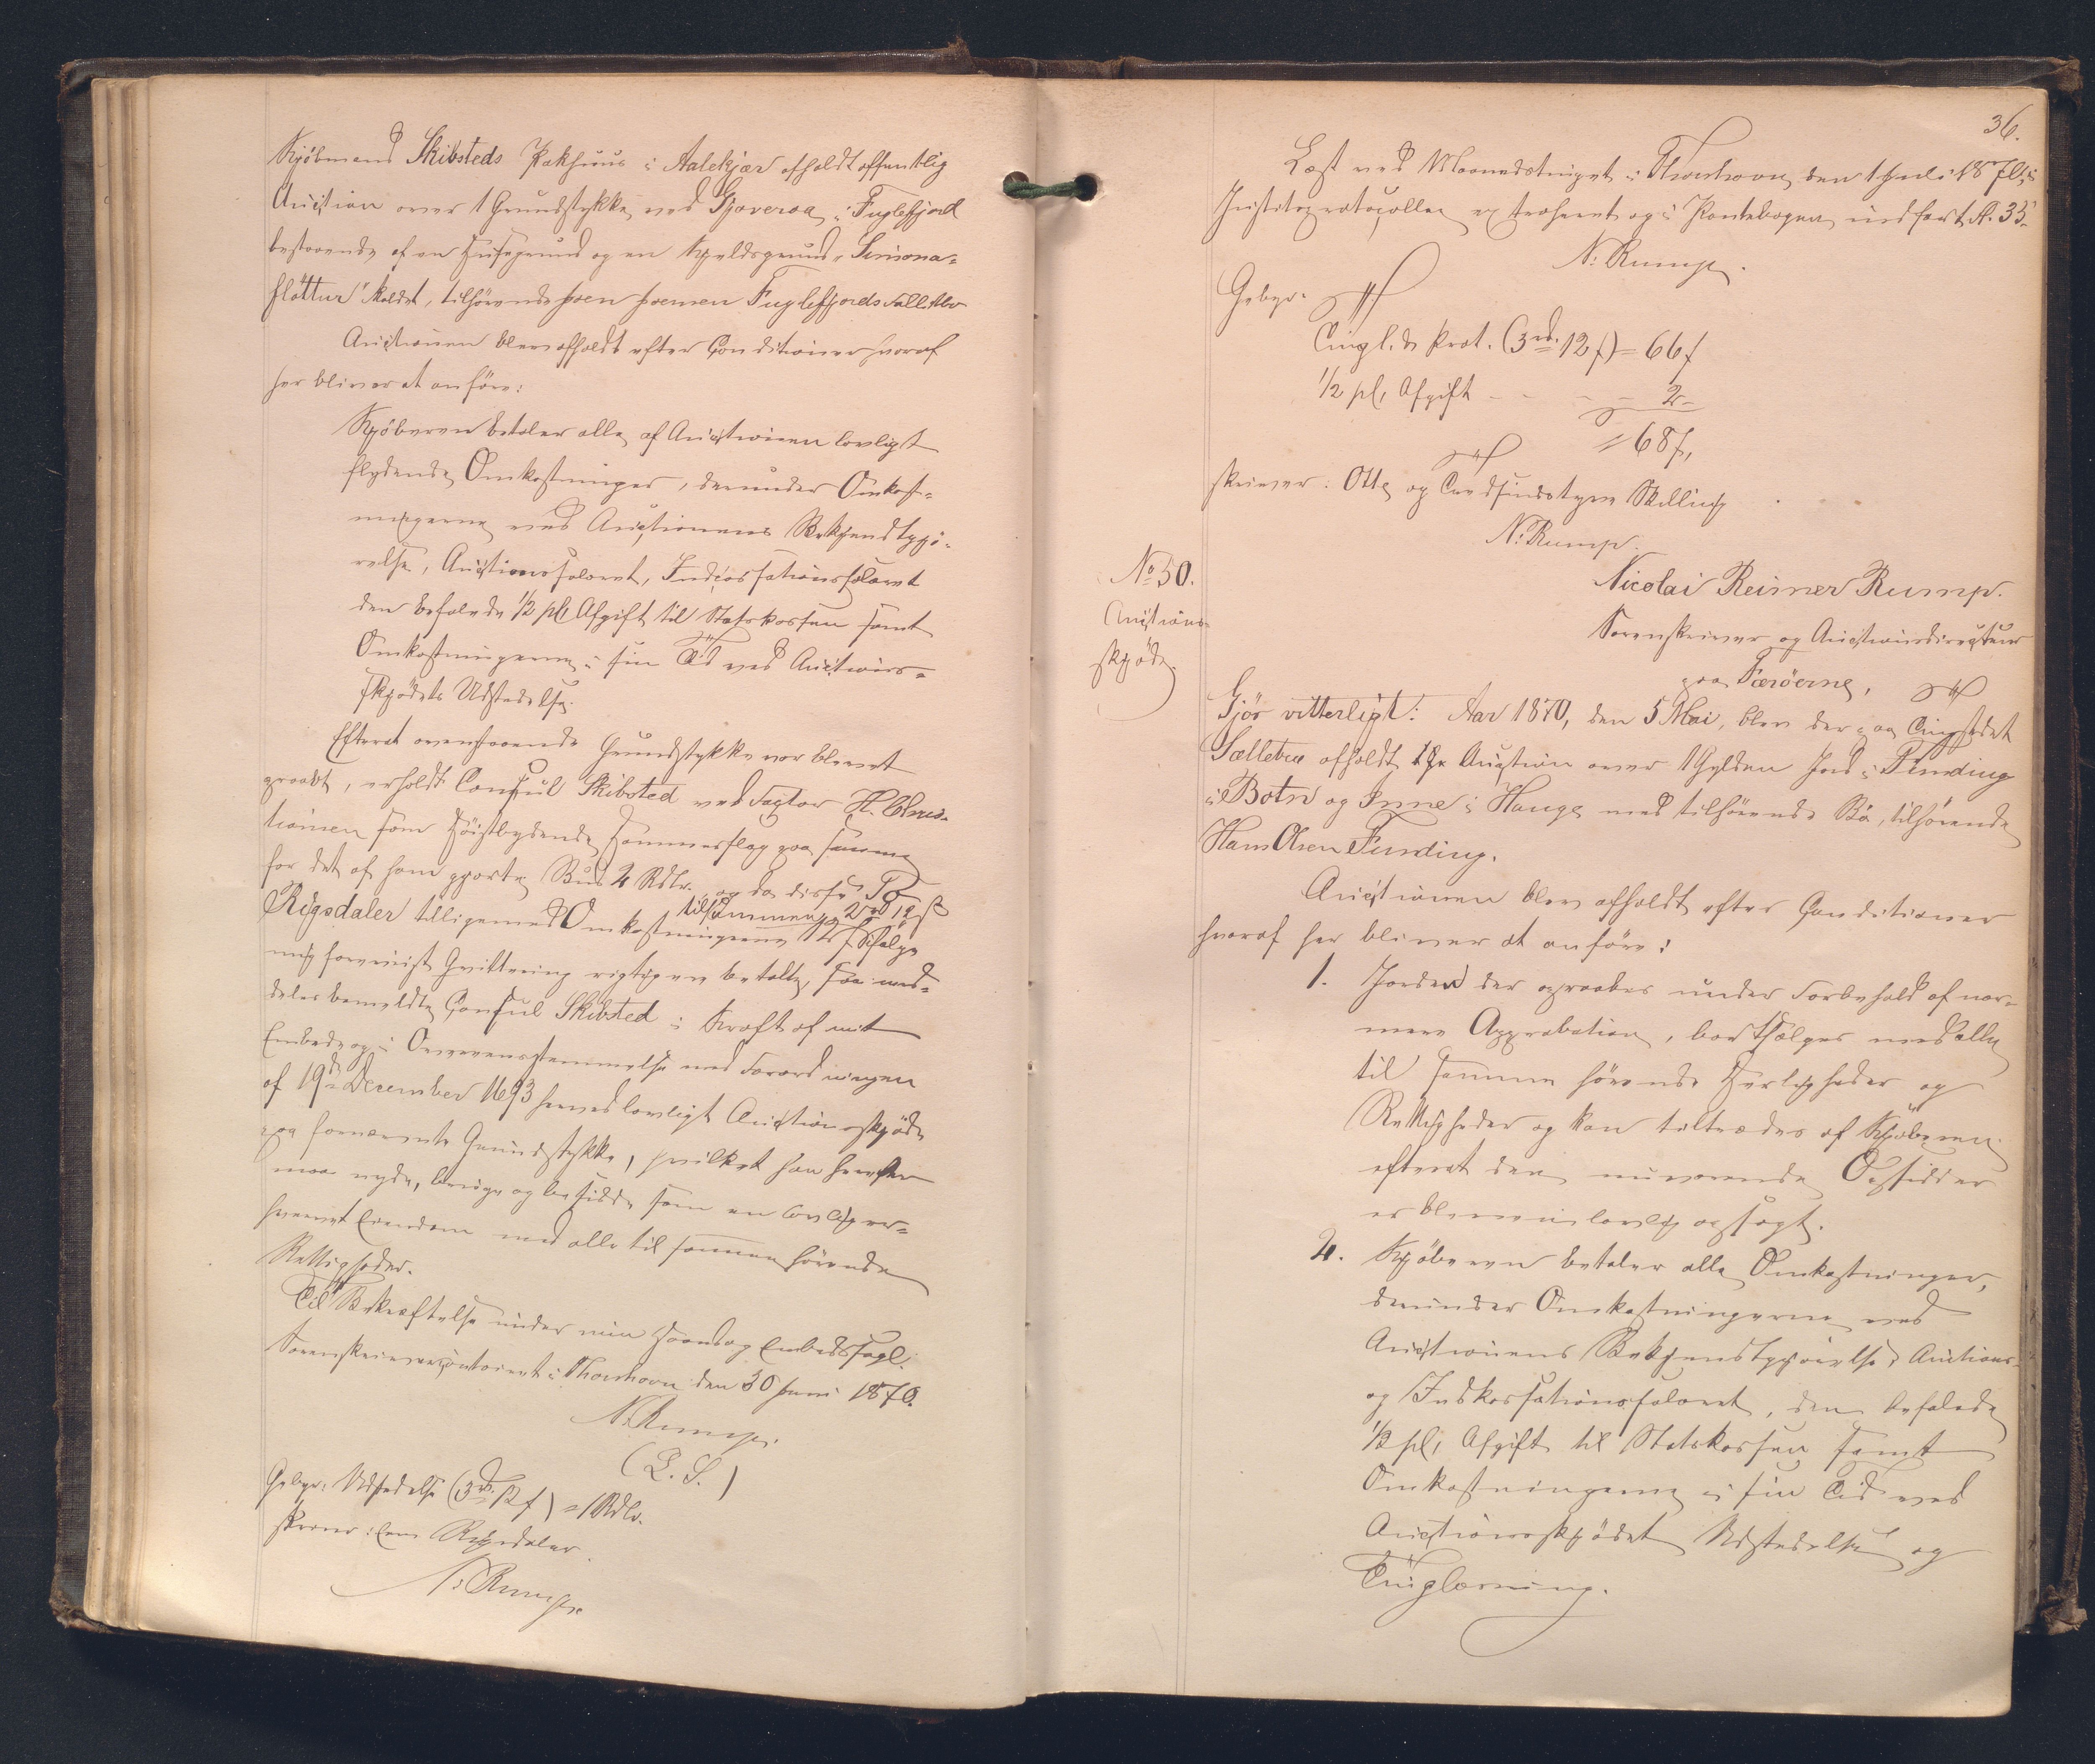 Kjöbmand Skibsteds Pakhuus i Aalekjær afholdt offentlig
Auction over 1 Grundstykke ved Gjoveraa i Fuglefjord
bestaaende af en Huusgrund og en Kjeldsgrund "Simona-
flöttur" kaldet, tilhörende Fuglefjords
Auctionen blev afholdt efter Conditioner hvoraf
her bliver at anföre:
Kjöberen betaler alle af Auctionen lovligt
flydende Omkostninger, derunder Omkost-
ningerne ved Auctionens Bekjendtgjö-
relse, Auctionssalairet, Incassationssalairet
den befalede 1/2 pCt Afgift til Statskassen samt
Omkostningerne i sin Tid ved Auctions-
skjödets Udstedelse.
Efterat ovenstaaende Grundstykke var blevet
opraabt, erholdt Consul Skibsted ved Factor H. Chris-
tiansen som Höistbydende Hammerslag paa samme
for det af ham gjorte Bud 2 Rdlr. og da disse To
tilsammen 2 rd 12 s
Rigsdaler tilligemed Omkostningerne ifölge
mig foreviist Qvittering rigtigen betalte, saa med-
deles bemeldte Consul Skibsted i Kraft af mit
Embede og i Overeensstemmelse med Forordningen
af 19de December 1693 herved lovligt Auctionsskjöde
paa fornævnte Grundstykke, hvilket han herefter
maa nyde, bruge og besidde som en lovlig er-
hvervet Eiendom med alle til samme hörende
Rettigheder.
Til Bekræftelse under min Haand og Embedssegl.
Sorenskrivercontoiret i Thorshavn den 30 Juni 1870.
N. Rump.
(L. S.)
Gebyr: Udstedelse (3 rd. 12 s) = 1 Rdlr.
skriver: Een Rigsdaler.
N. Rump
36.
Læst ved Maanedstinget i Thorshavn den 1 Juli 1870, i
Justitsprotocollen extraheret og i Pantebogen indfört fl. 35.
N. Rump.
Gebyr:
Tingl. & Prot. (3 rd. 12 s) = 66 s
1/2 pCt Afgift - - - - 2 -
= 68 s,
skriver: Otte og Tredsindstyve Skilling
N. Rump.
No 50.
Auctions-
skjöde.
Nicolai Reimer Rump.
Sorenskriver og Auctionsdirecteur
paa Færöerne,
Gjör vitterligt: Aar 1870, den 5 Mai, blev der paa Tingstedet
Sælletræ afholdt Auction over 1 Gylden Jord i Funding
i Botn og Inne i Hauge med tilhörende Bö, tilhörende
Hans Olsen Funding.
Auctionen blev afholdt efter Conditioner
hvoraf her bliver at anföre:
1. Jorden der opraabes under Forbehold af nær-
mere Approbation, bortsælges med alle
til samme hörende Herligheder og
Rettigheder og kan tiltrædes af Kjöberen
efterat den nuværende Opsidder
er bleven lovlig opsagt.
2. Kjöberen betaler alle Omkostninger,
derunder Omkostningerne ved
Auctionens Bekjendtgjörelse, Auctions-
og Indkassationssalairet, den befalede
1/2 pCt Afgift til Statskassen samt
Omkostningerne i sin Tid ved
Auctionsskjödets Udstedelse og
Tinglæsning.